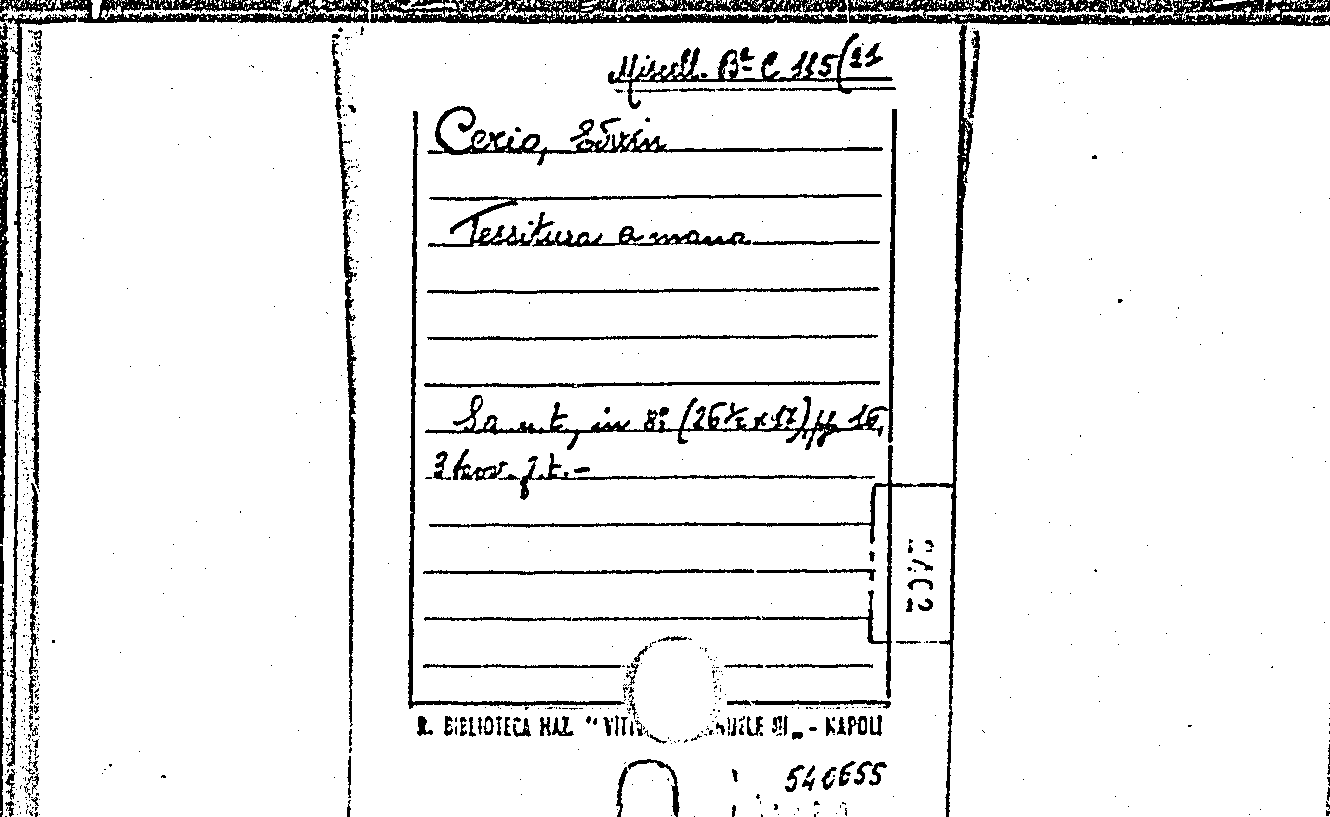 Miscell. Bª C 115(21
Cerio, Edwin
Tessitura a mano
S. a. n. t., in 8º (26½ x 17), pp 16,
3 tavv. f. t. -
R. BIBLIOTECA NAZ. " VITT NUELE III „ - NAPOLI
540655